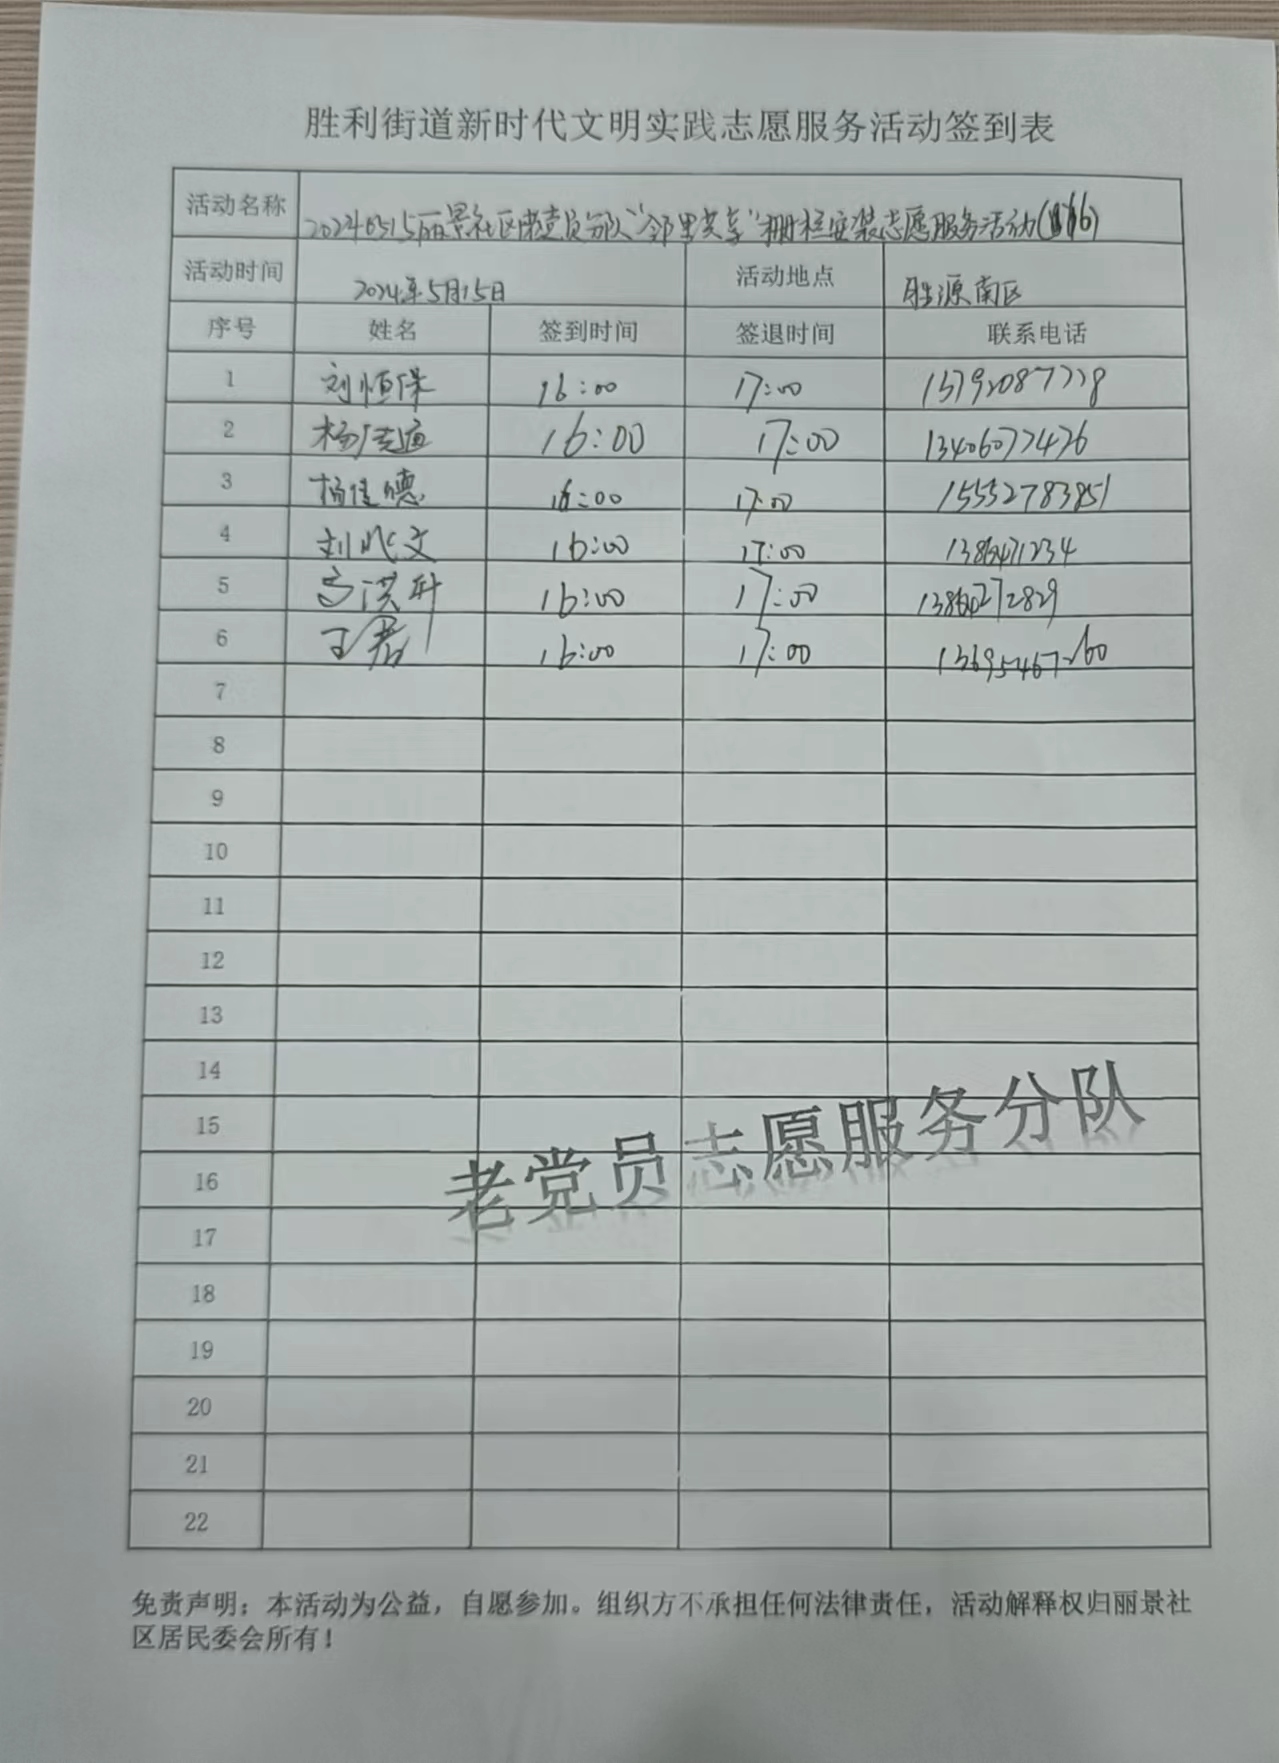 胜利街道新时代文明实践志愿服务活动签到表
活动名称 20240515丽景社区老党员分队"邻里共享"栅栏安装志愿服务活动
活动时间 2024年5月15日 活动地点 胜源南区
序号 姓名 签到时间 签退时间 联系电话
1 刘恒保 16:00 17:00 13792087728
2 16:00 17:00 13406077476
3 杨佳德 16:00 17:00 15552783851
4 16:00 17:00
5 16:00 17:00
6 王君 16:00 17:00
7
8
9
10
11
12
13
14
15
16
17
18
19
20
21
22
老党员志愿服务分队
免责声明：本活动为公益，自愿参加。组织方不承担任何法律责任，活动解释权归丽景社
区居民委会所有！